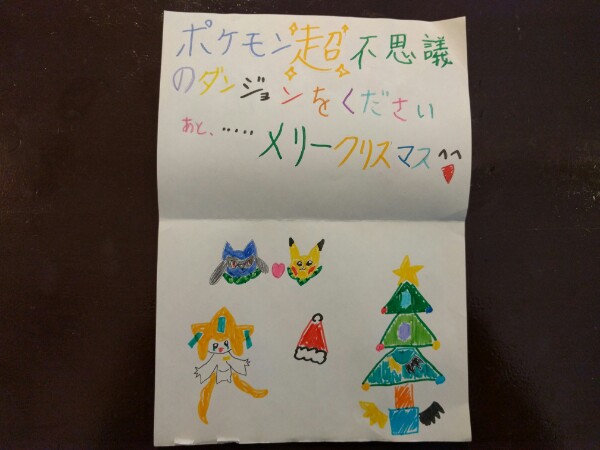 ポケモン超不思議
のダンジョンをください
あと、‥‥‥メリークリスマス^^